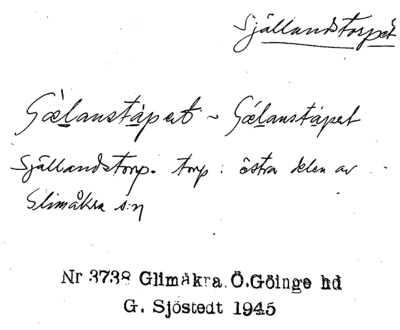 Själlandstorpet
Sjælanstápet ~ Sjǽlanstápet
Själlandstorp. torp i östra delen av
Glimåkra s:n
Nr 3738 Glimåkra. Ö. Göinge hd
G. Sjöstedt 1945